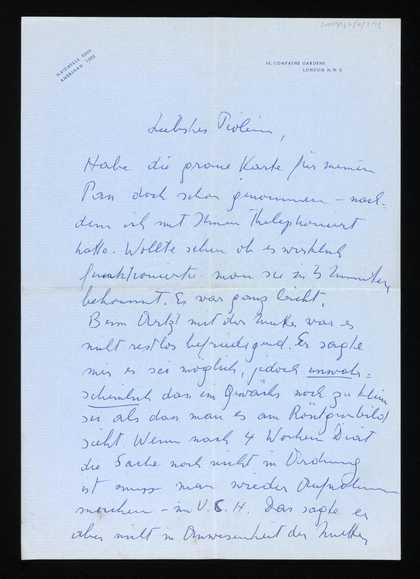 14, COMPAYNE GARDENS
LONDON N.W. 6
MAIDA VALE 5001
Liebstes Violein,
Habe die graue Karte für meinen
Pass doch schon genommen – nach-
dem ich mit Ihnen telephoniert
hatte. Wollte sehen ob es wirklich
funktionierte man sie in 5 Minuten
bekommt. Es war ganz leicht.
Beim Arzt mit der Mutter war es
nicht restlos befriedigend. Er sagte
mir es sei möglich, jedoch unwahr=
scheinlich dass ein Gewächs noch zu klein
sei als dass man es am Röntgenbild
sieht Wenn nach 4 Wochen Diät
die Sache noch nicht in Ordnung
ist muss man wieder Aufnahmen
machen – in U.C.H. Das sagte er
aber nicht in Anwesenheit der Mutter